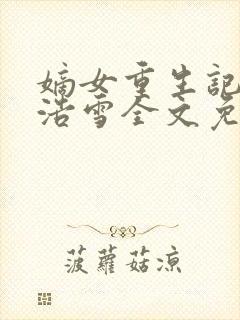 嫡女重生記
浩雪全文免
菠蘿菇涼